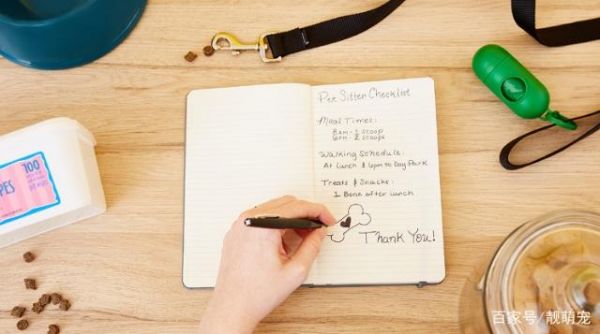 Pet Sitter Checklist
Meal Times:
8am-1 scoop
6pm-2 scoops
Walking Schedule:
At Lunch & 6pm to Dog Park
Treats & Snacks:
1 Bone after lunch
Thank You!
100
PES
百家号/靓萌宠